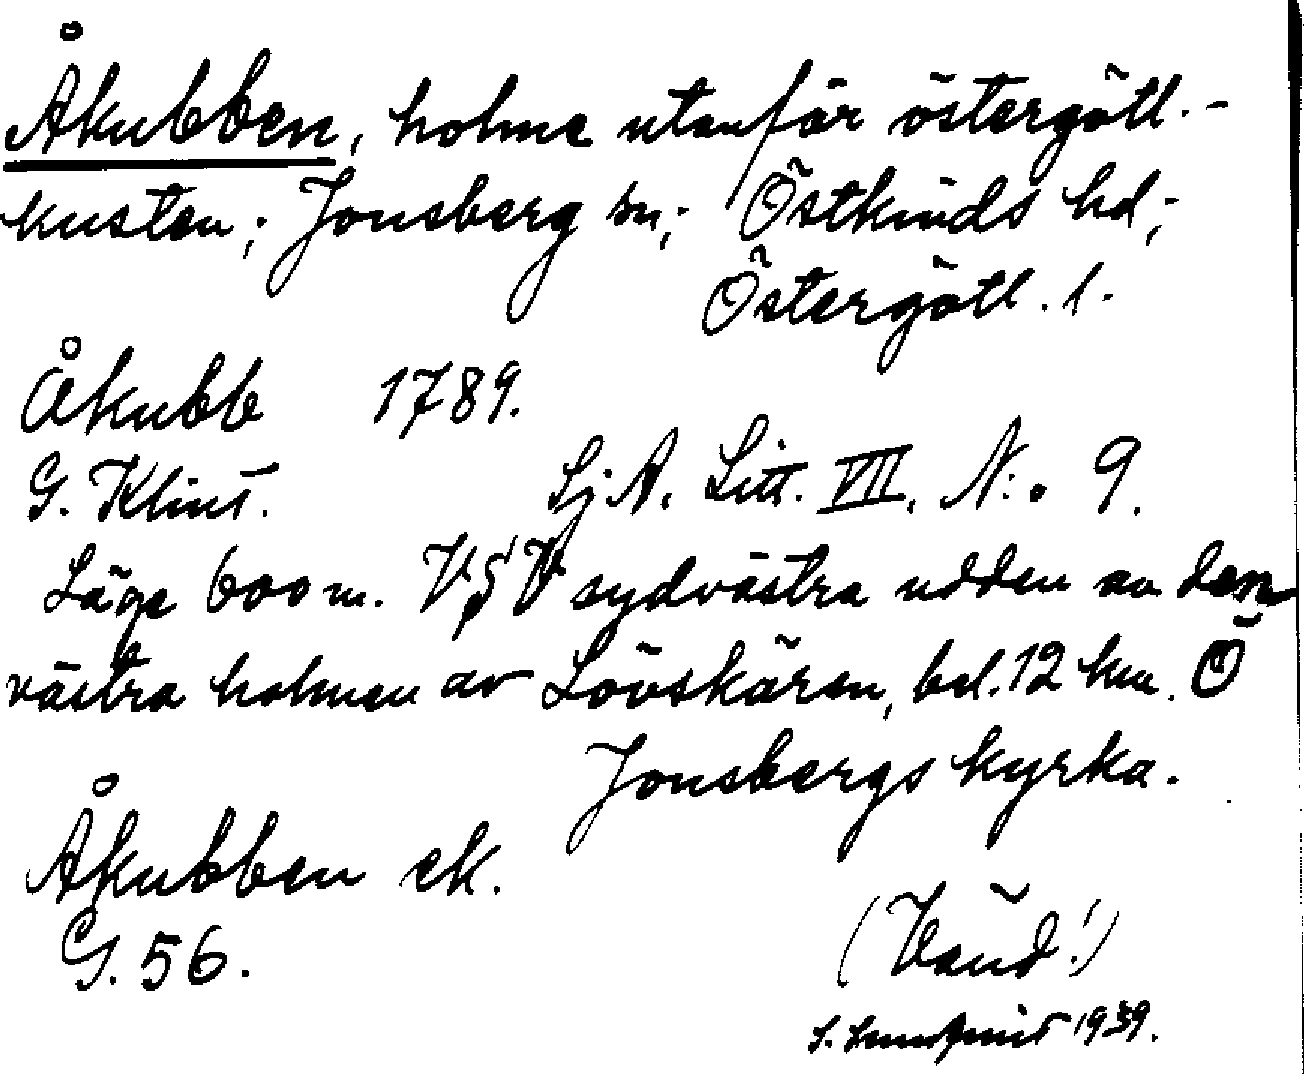 Åkubben, holme utanför östergötl.-
kusten; Jonsberg sn; Östkinds hd;
Östergötl. l.
Åkubb 1789.
G. Klint. Sj A. Litt. VII. N:o 9.
Läge 600 m. VSV sydvästra udden av den
västra holmen av Lövskären, bel. 12 km. Ö
Jonsbergs kyrka.
Åkubben ek.
G. 56.
(Vänd!)
S. Lundqvist 1939.